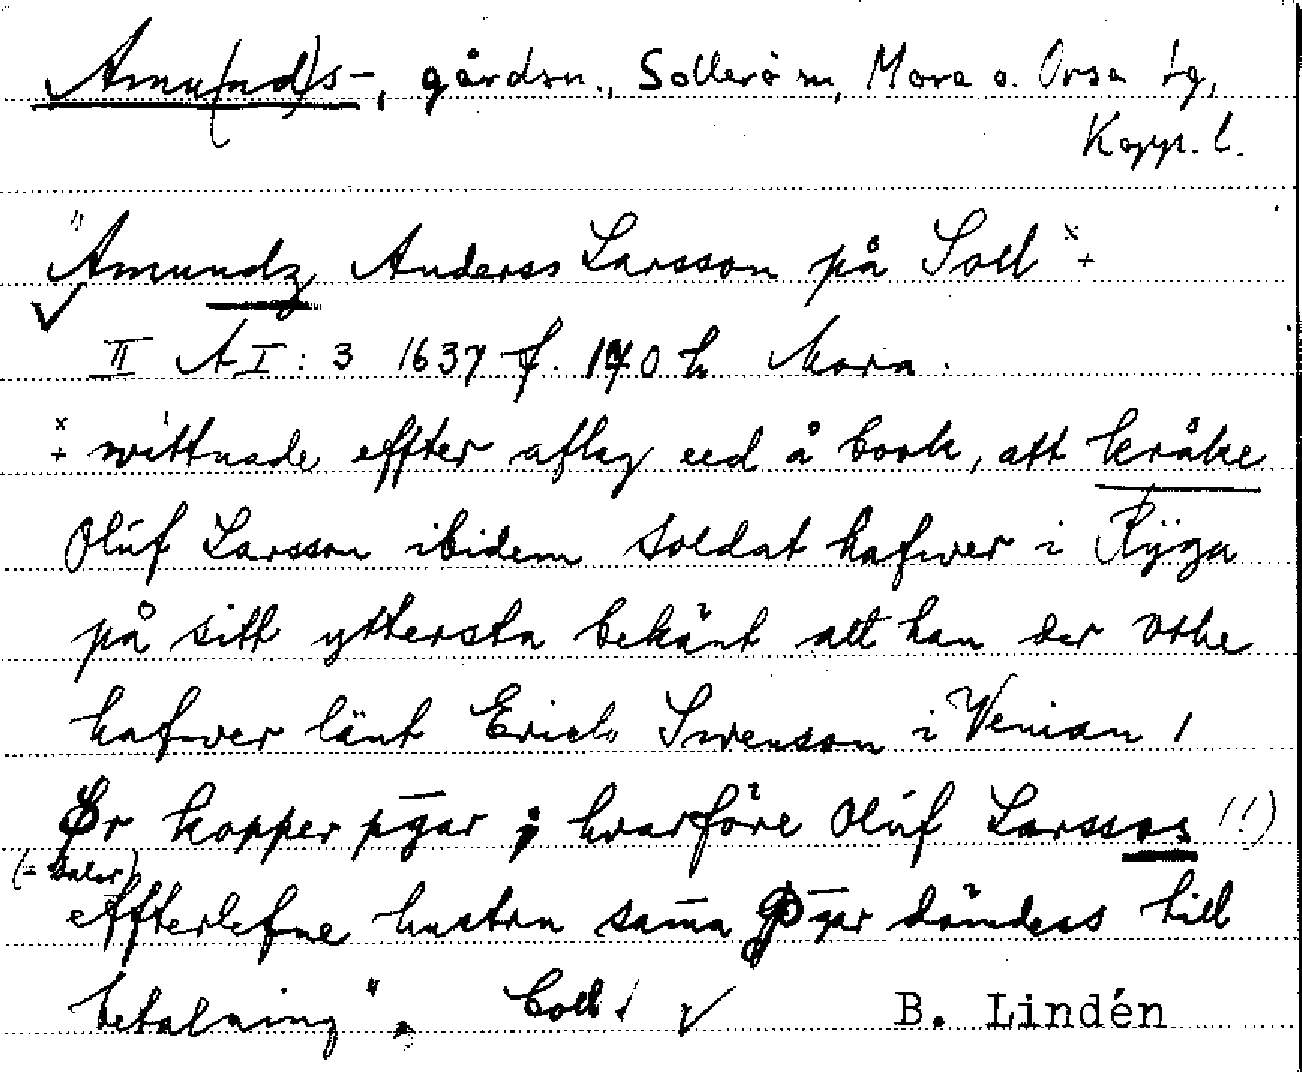 Amu(nd)s-, gårdsn., Sollerö sn, Mora o. Orsa tg,
Kopp. l.
"Amundz Anderss Larsson på Soll x/+
II A I: 3 1637 f. 170 h Mora.
x/+ wittnade effter aflag eed å book, att kråke
Oluf Larsson ibidem soldat hafwer i Rÿga
på sitt yttersta bekänt att han der othe
hafwer länt Erich Swenson i Venian 1
Dr kopper pgar; hvarföre Oluf Larssos (!)
(= daler)
effterlefne hustru sama pgar dömdess till
betalning". Coll.! √ B. Lindén